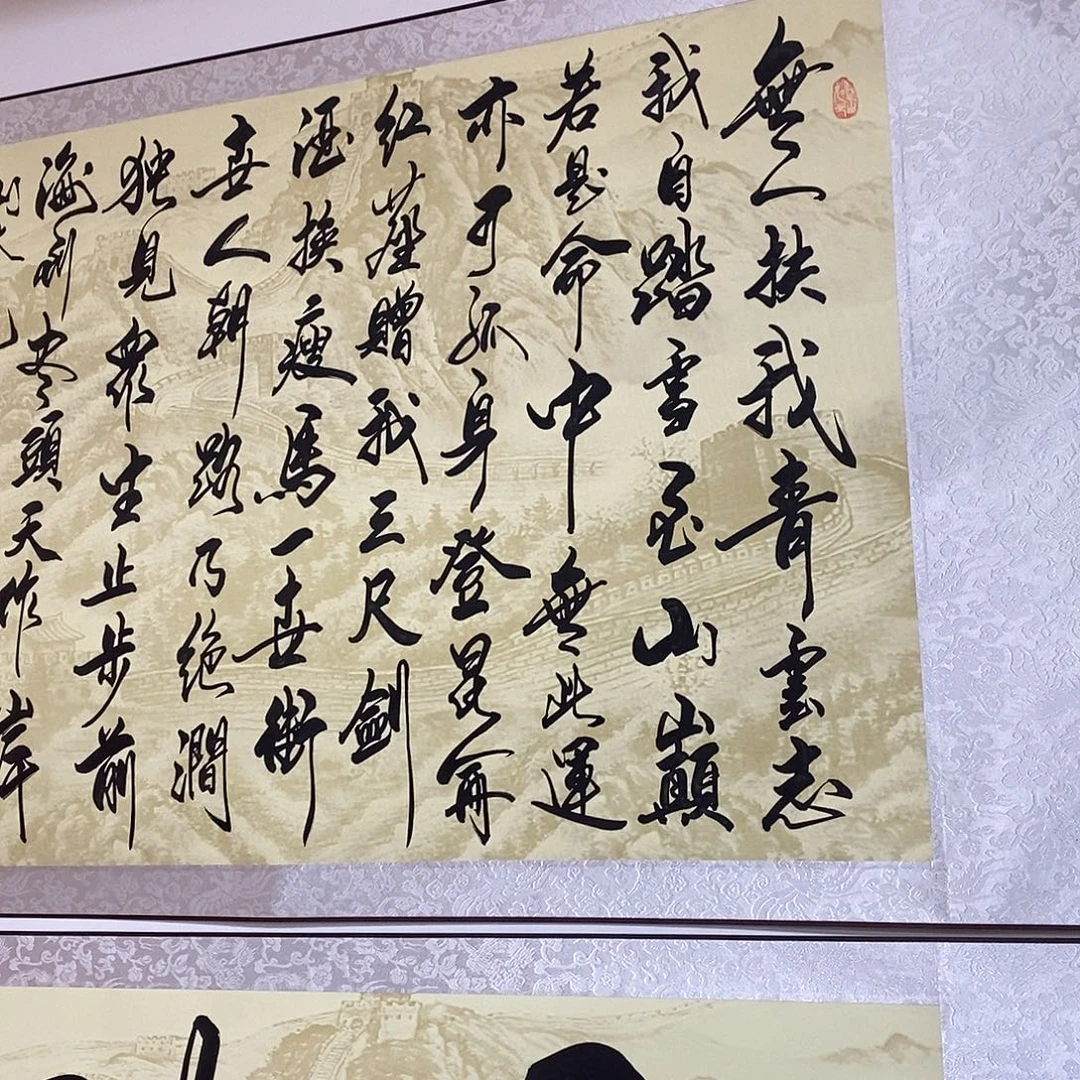 無人扶我青雲志
我自踏雪至山巔
若是命中無此運
亦可孤身登昆侖
红塵贈我三尺劍
酒換瘦馬一世街
世人朝路乃絕澗
独見眾生止步前
海到尽頭天作岸